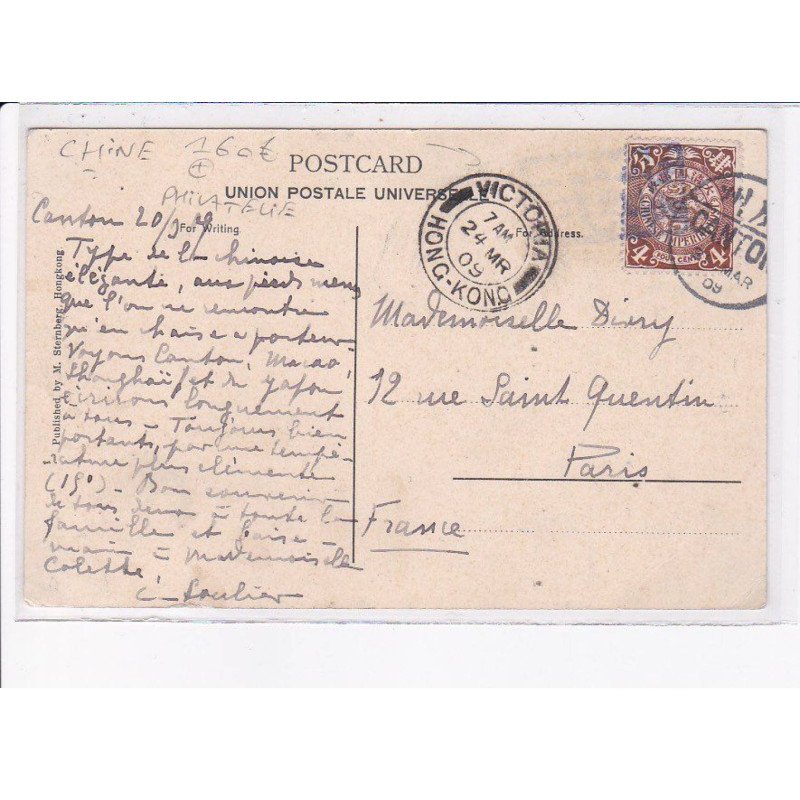 CHINE 160€
PHILATELIE
POSTCARD
UNION POSTALE UNIVERSELLE
For Writing.
For Address.
Published by M. Sternberg, Hongkong
VICTORIA
7 AM
24 MR
09
HONG-KONG
CANTON
MAR
09
IMPERI
4
4
Canton 20/3 09
Type de la chinoise
élégante, aux pieds menus
que l'on ne rencontre
qu'en chaise a porteur
Voyons Canton, Macao,
Shanghaï et du Japon
écrirons longuement
à tous - Toujours bien
portants, par une tempé-
rature plus clémente
(19°) - Bon souvenir
de tous deux à toute la
famille et baise-
main à Mademoiselle
Colette,
C. Soulier
Mademoiselle
12 rue Saint Quentin
Paris
France